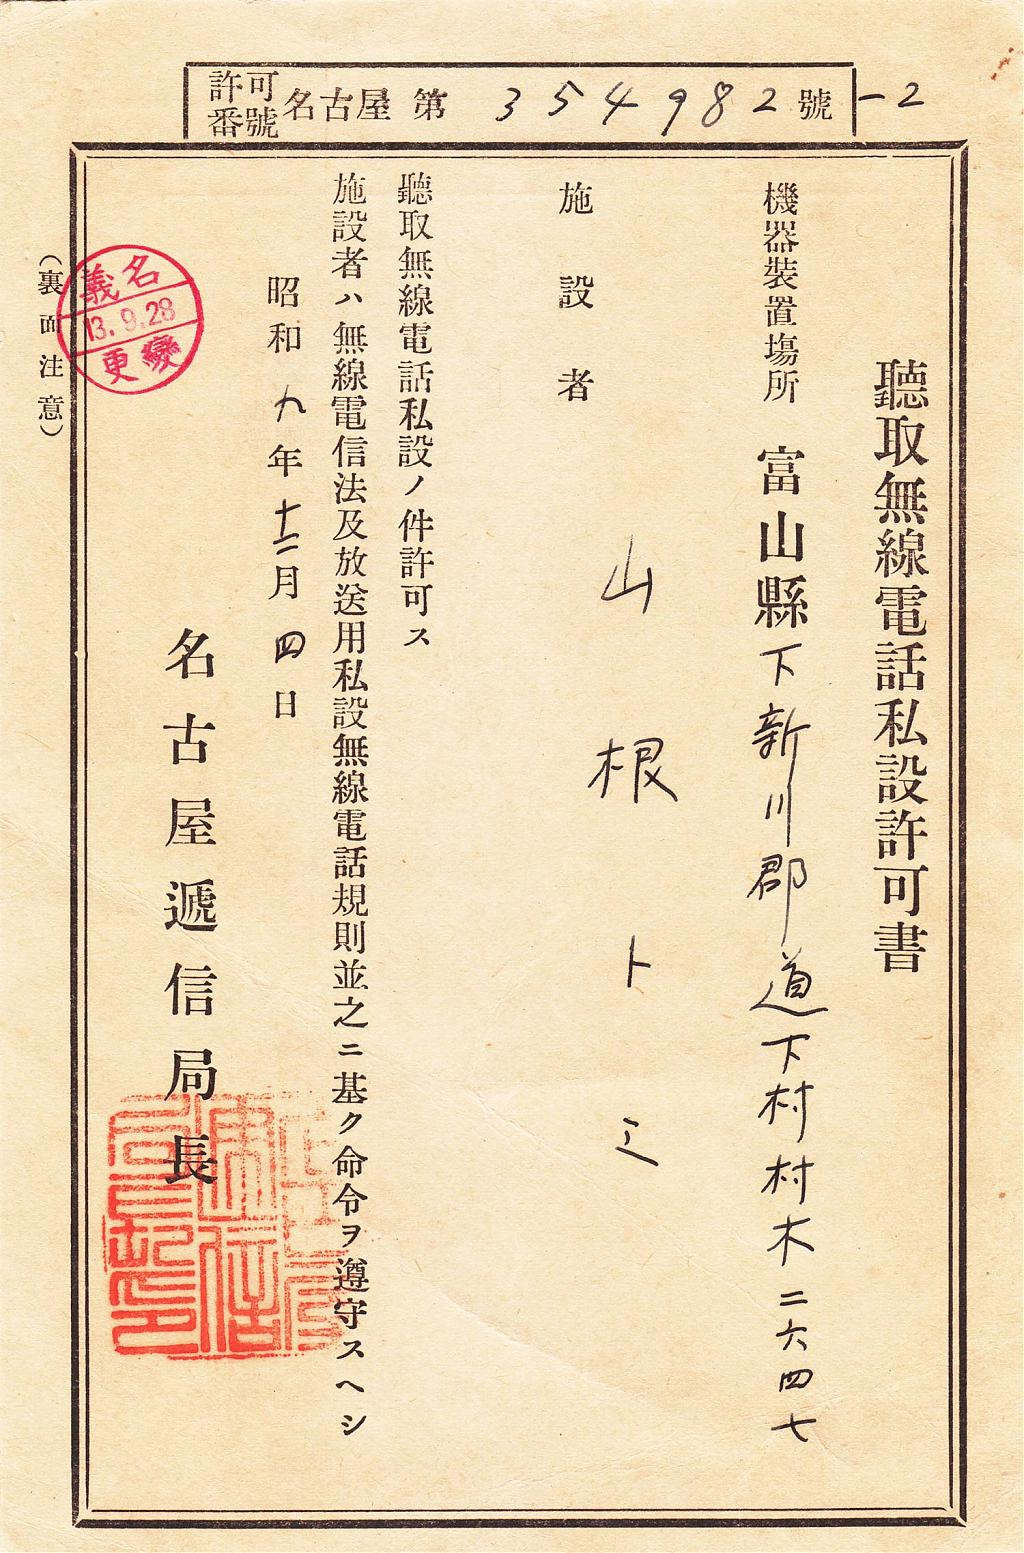 許可番號 名古屋 第 354982 號 -2
聽取無線電話私設許可書
機器裝置塲所 富山縣下新川郡道下村村木二六四七
施設者 山根トミ
聽取無線電話私設ノ件許可ス
施設者ハ無線電信法及放送用私設無線電話規則並之ニ基ク命令ヲ遵守スヘシ
昭和九年十二月四日
名古屋遞信局長
(裏面注意)
名義
13.9.28
變更